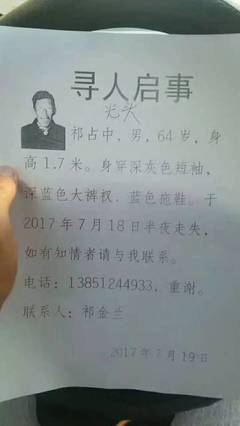 寻人启事
光头
祁占中，男，64岁，身
高1.7米。身穿深灰色短袖，
深蓝色大裤杈．蓝色拖鞋。于
2017年7月18日半夜走失，
如有知情者请与我联系。
电话：13851244933，重谢。
联系人：祁金兰
2017年7月19日